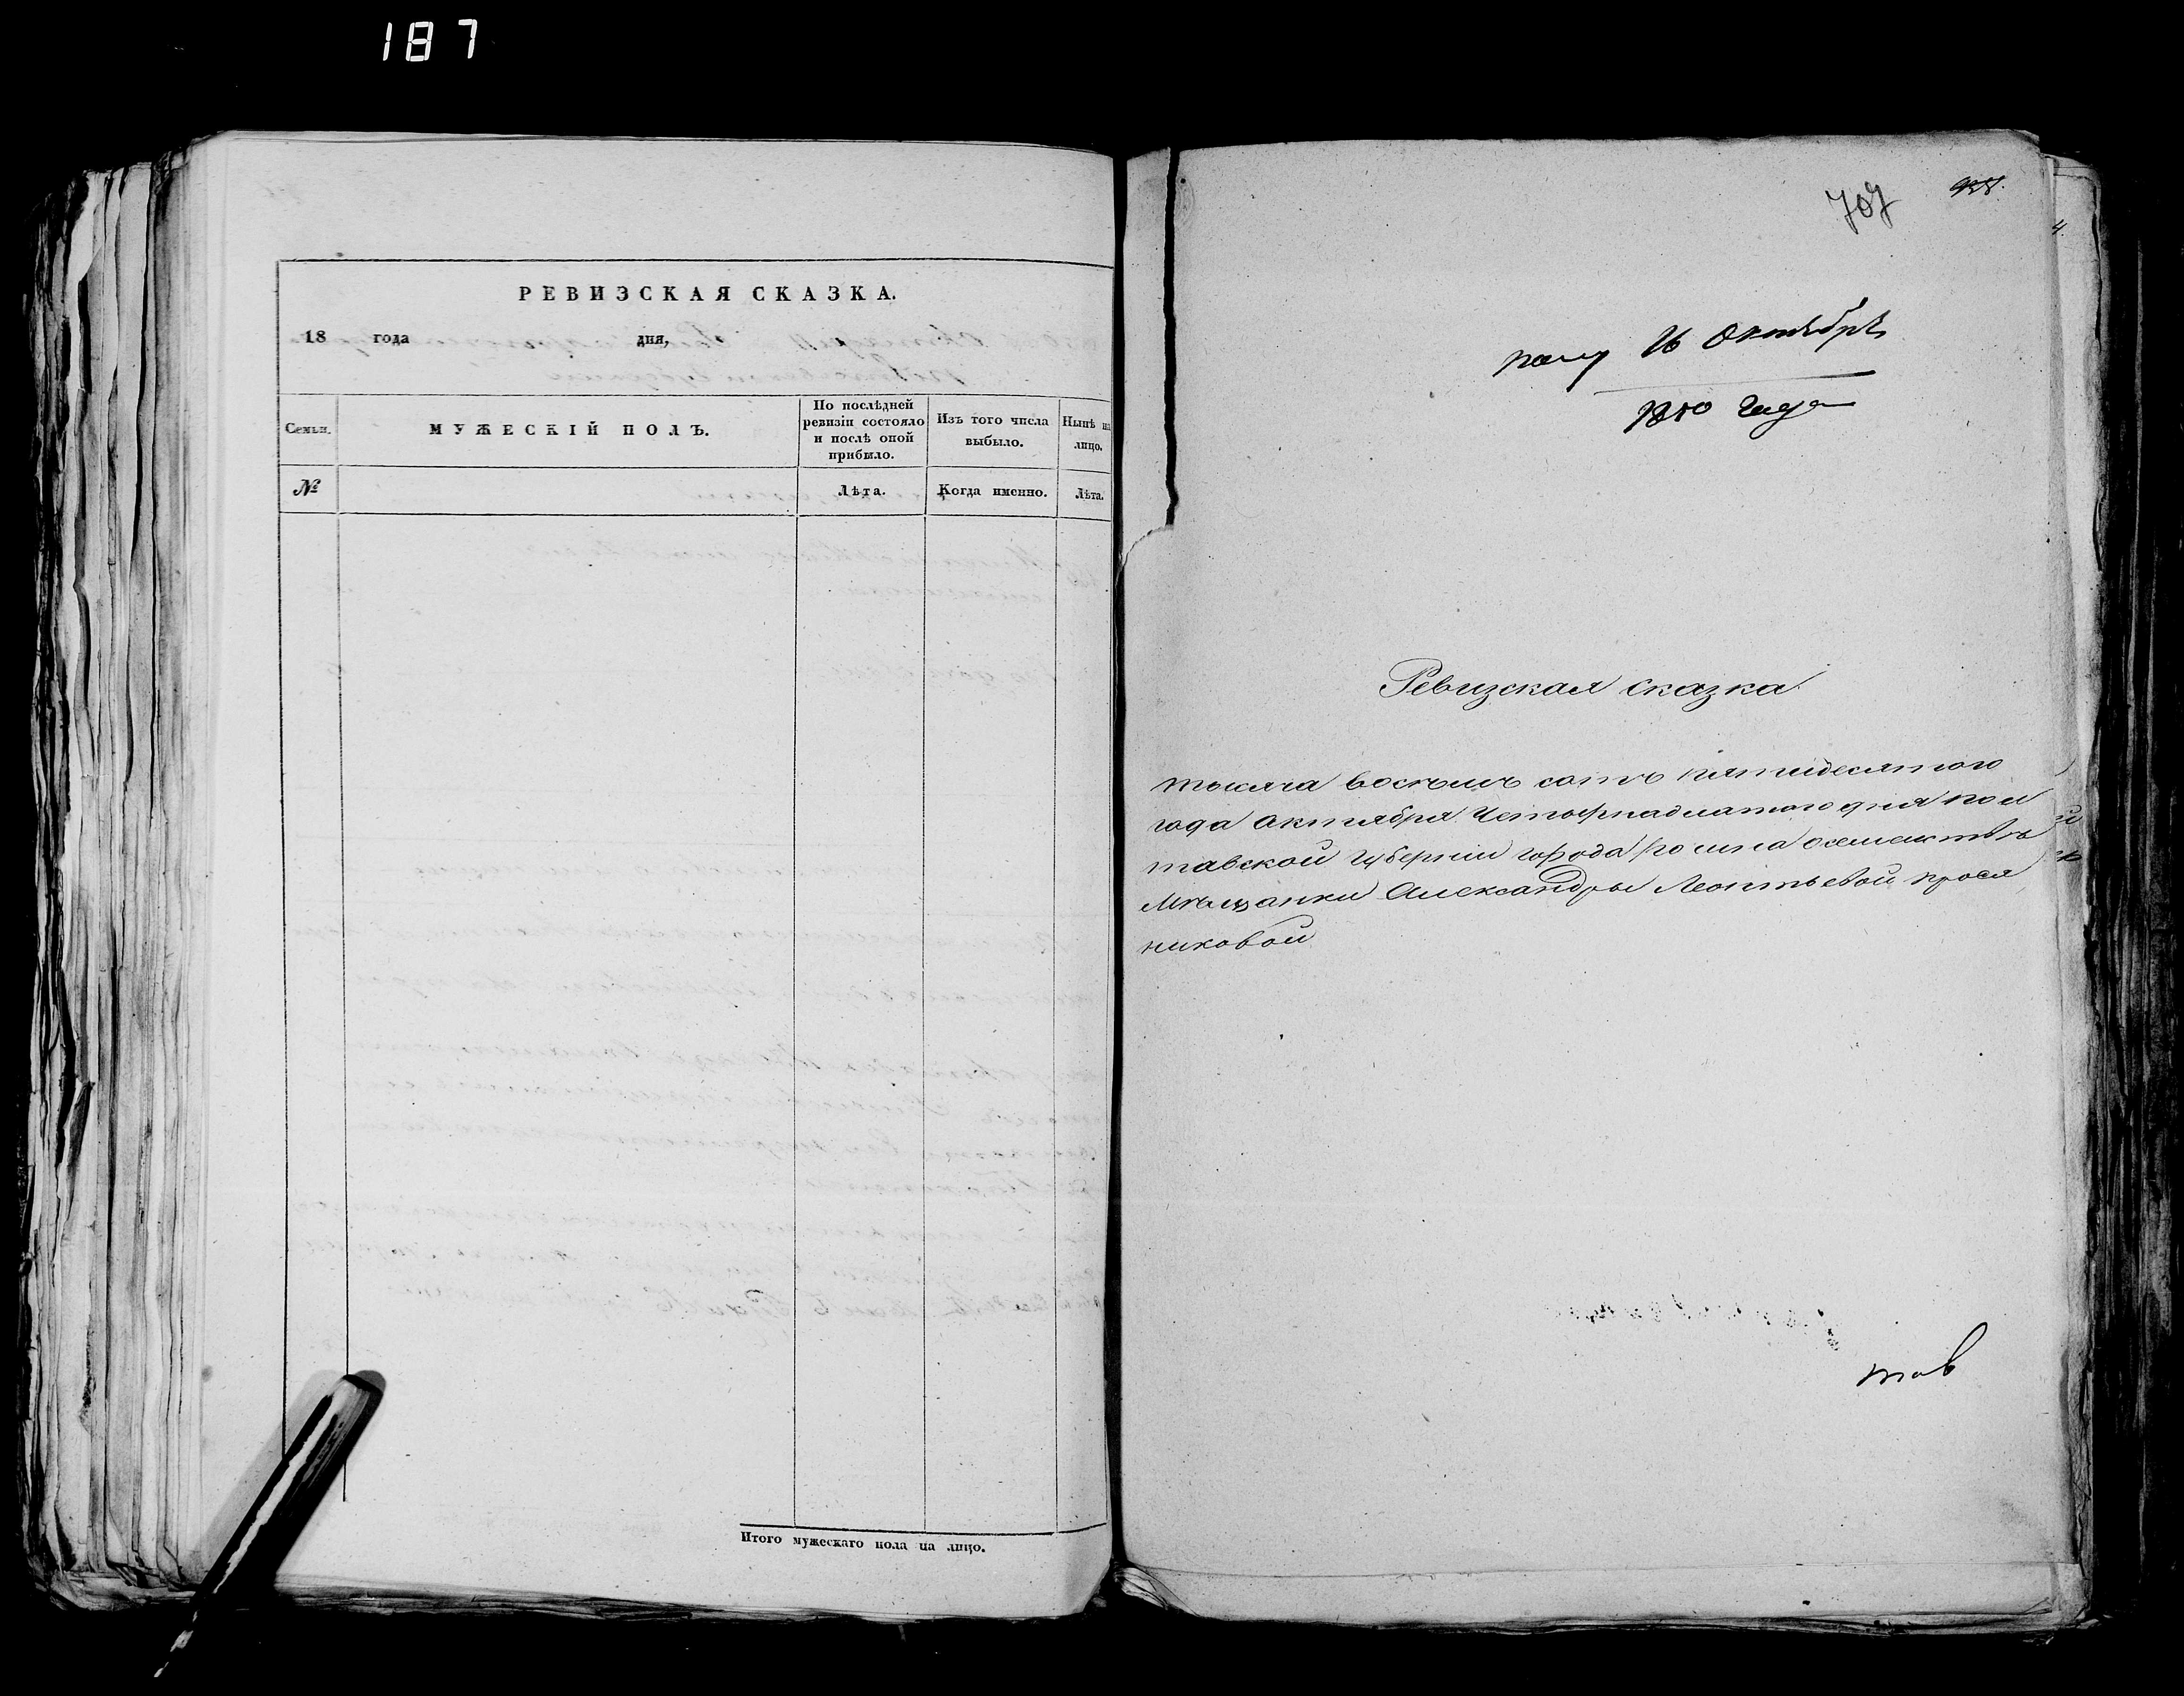 187
РЕВИЗСКАЯ СКАЗКА.
18 года дня,
Семьи.
МУЖЕСКІЙ ПОЛЪ.
По послѣдней
ревизіи состояло
и послѣ оной
прибыло.
Изъ того числа
выбыло.
Нынѣ на
лицо.
№
Лѣта.
Когда именно.
Лѣта.
Итого мужескаго пола на лицо.
707
пол 16 Октября
1850 года
Ревизская сказка
тысяча восемъ сотъ пятидесятого
года октября Четырнадцатого дня пол
тавской губерніи города ромна осемействѣ
Мѣщанки Александры Леонтьевой прося
никовой